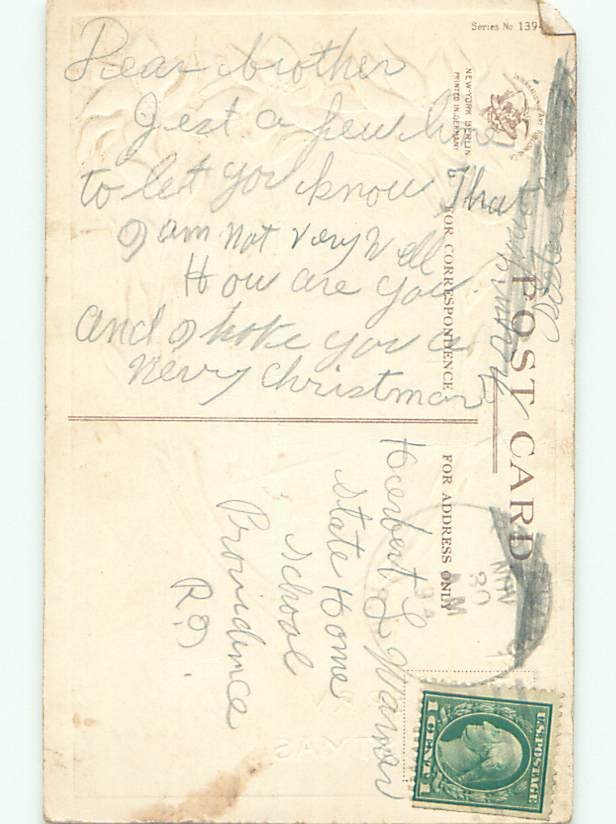 Series No 139
NEW-YORK BERLIN
PRINTED IN GERMANY
POST CARD
FOR CORRESPONDENCE
FOR ADDRESS ONLY
Dear brother
Jest a few line
to let you know That
I am not very Well
How are you
and I hoke you a
merry christmas
Herbert L Warner
State Home
School
Providence
R.I.
NOV
30
AM
U.S. POSTAGE
1 CENT 1